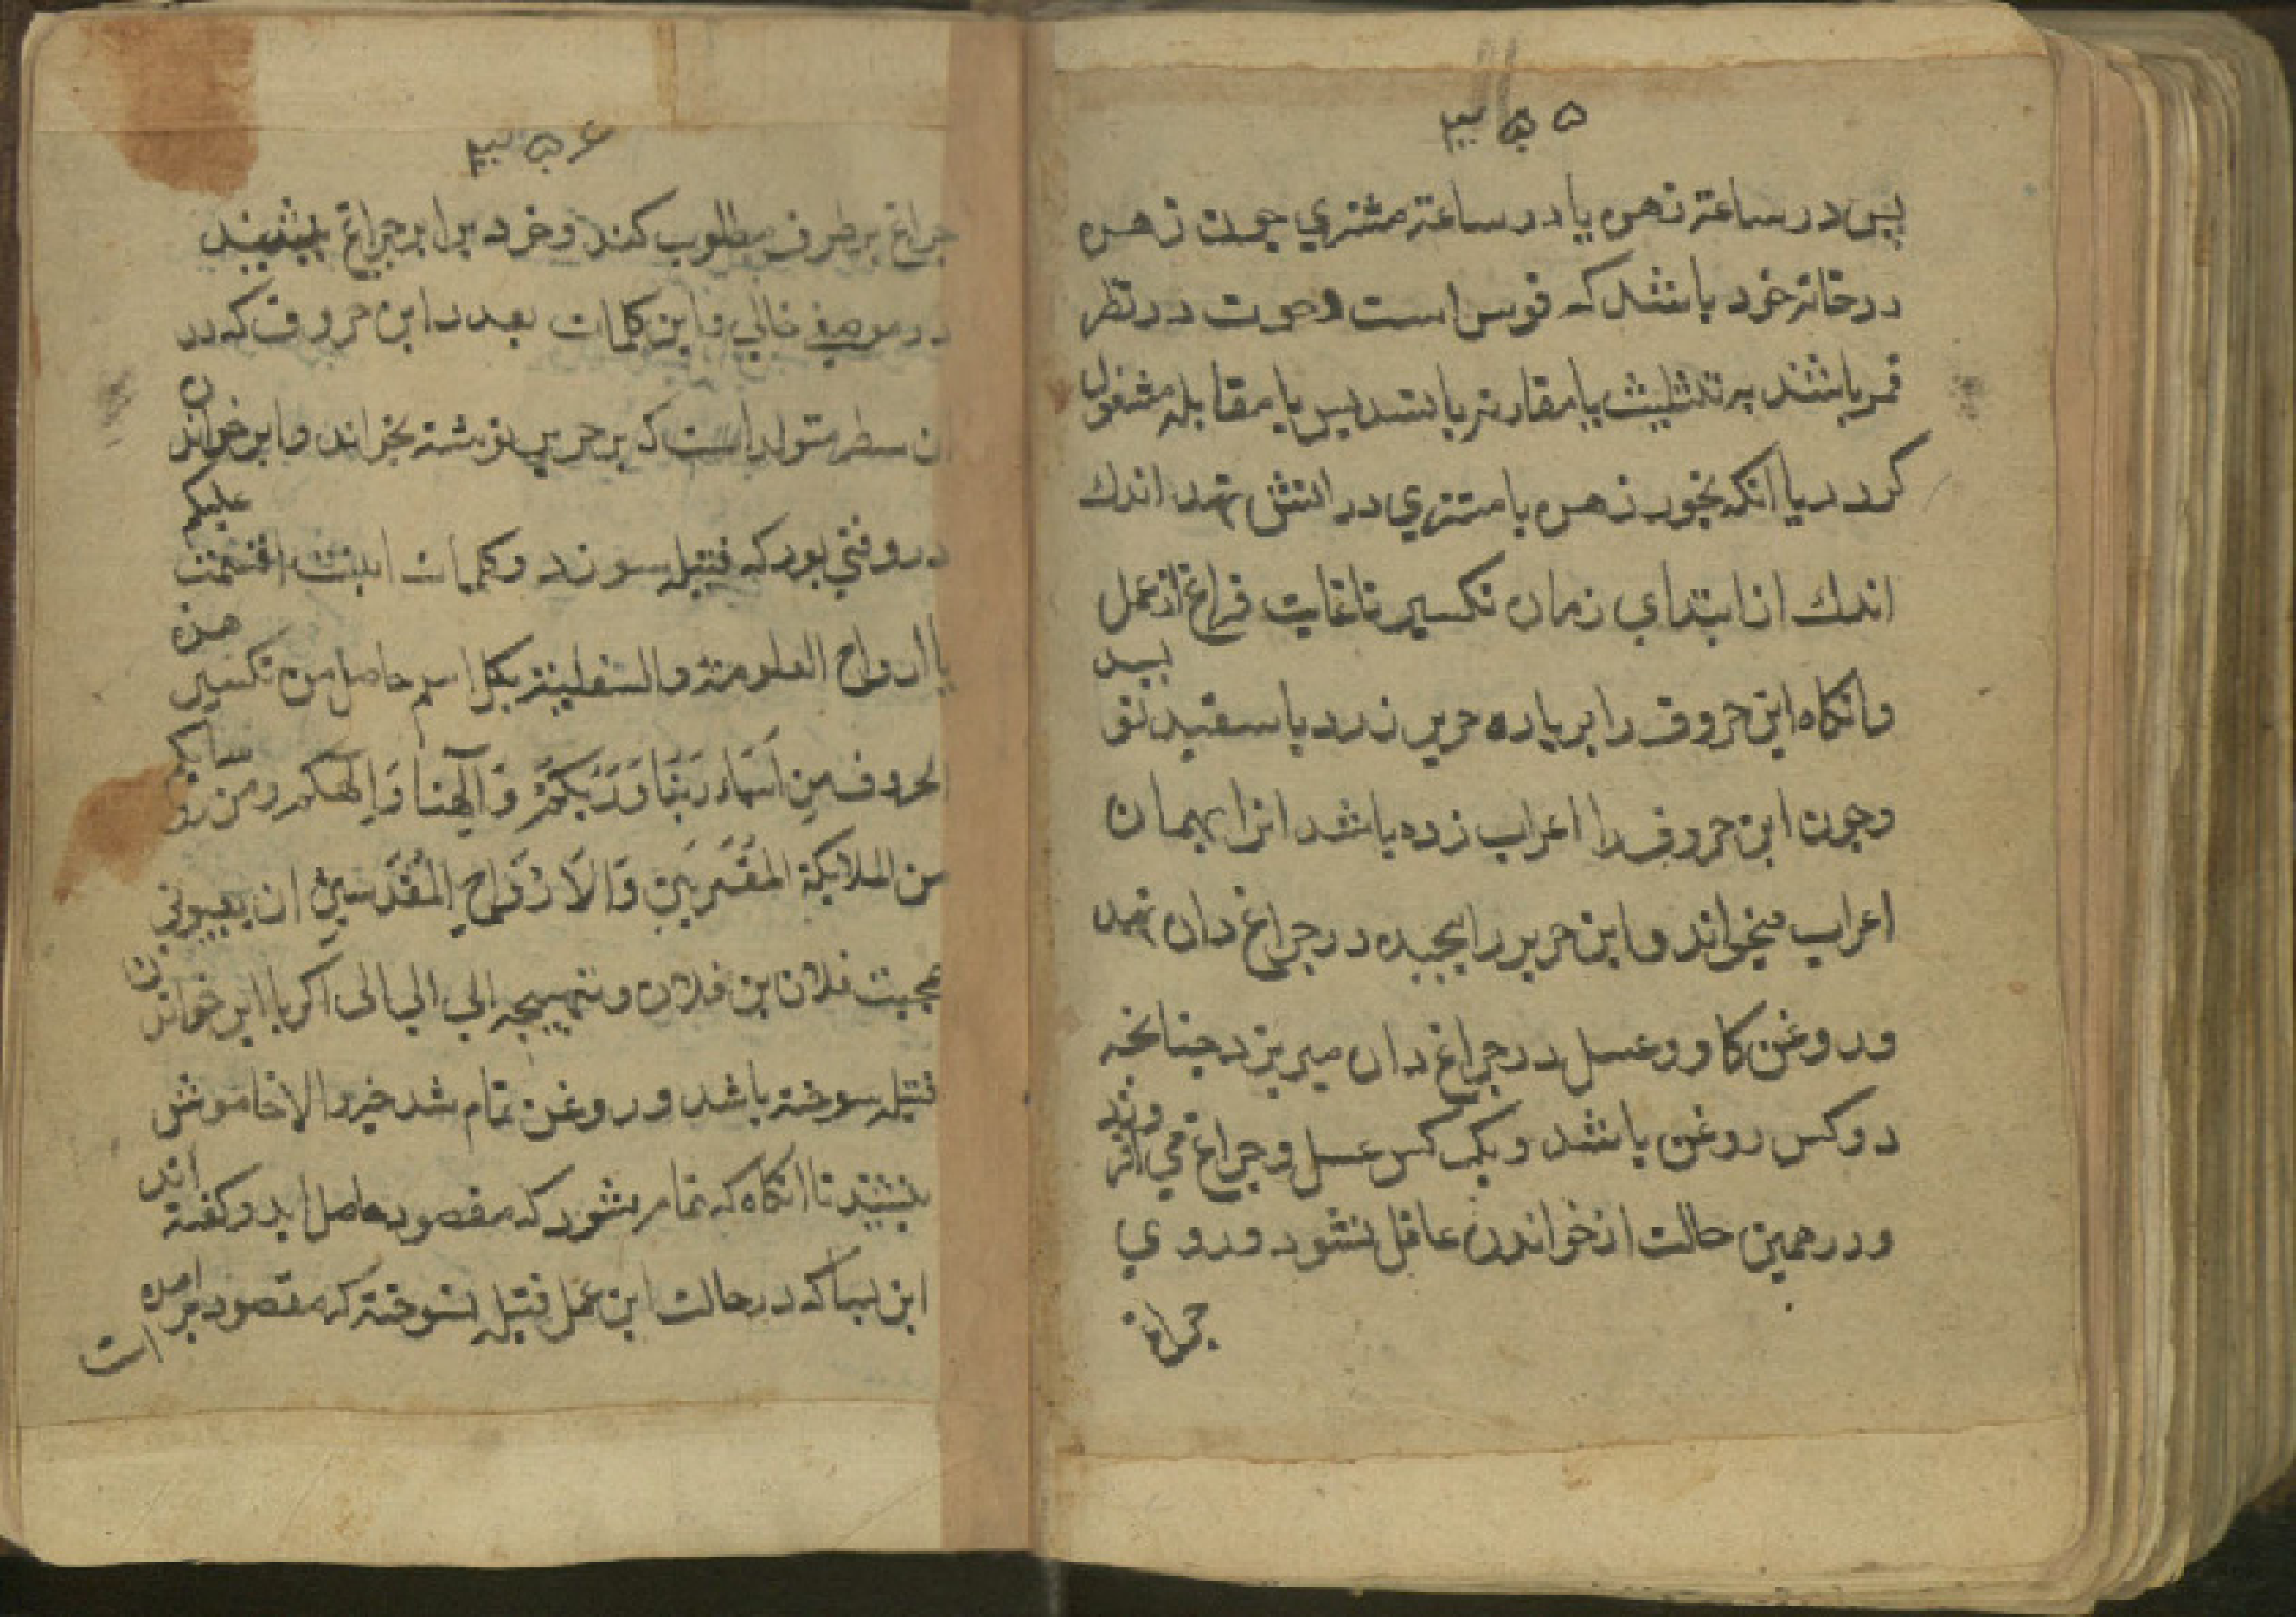 ۴۵۵
پس در ساعة زهره یا در ساعة مشتری چون زهره
در خانه خود باشد که قوس است وحوت در نظر
قمر باشند به تثلیث یا مقارنه یا بتسدیس یا مقابله مشغول
کردد یا انکه بخور زهره یا مشتری در اتش نهد اندك
اندك از ابتدای زمان تکسیر تا غایت فراغ از عمل
وانکاه این حروف را بر پاره حریر زرد یا سفید بنویسد
وچون این حروف را اعراب زده باشد انرا بهمان
اعراب میخواند واین حریر را پیچیده در چراغ دان نهد
وروغن کاو وعسل در چراغ دان میریزد چنانچه
دو کس روغن باشد ویک کس عسل وچراغ می افروزد
ودر همین حالت از خواندن غافل نشود وروی
چراغ
۴۵۶
چراغ بر طرف مطلوب کند وخود برابر چراغ بنشیند
در موضع خالی واین کلمات بعدد این حروف که در
ان سطر متولد است که بر حریر نوشته بخواند وابر خواندن
در وقتی بود که فتیله سوزد وکلمات اینست اقسمت علیکم
یا ارواح العلویة والسفلیة بکل اسم حاصل من تکسیر هذه
الحروف من اسماء ربنا وربکم والهنا والهکم ومن رؤسایکم
من الملایکة المقربین والارواح المقدسین ان یعینونی
بمحبت فلان بن فلان وتهییجه الی الی الی اکر با این خواندن
فتیله سوخته باشد وروغن تمام شد خیر والا خاموش
بنشیند تا انکاه که تمام شود که مقصود حاصل اید وکفته اند
این بسا که در حالت این عمل فتیله نسوخته که مقصود بر امده است